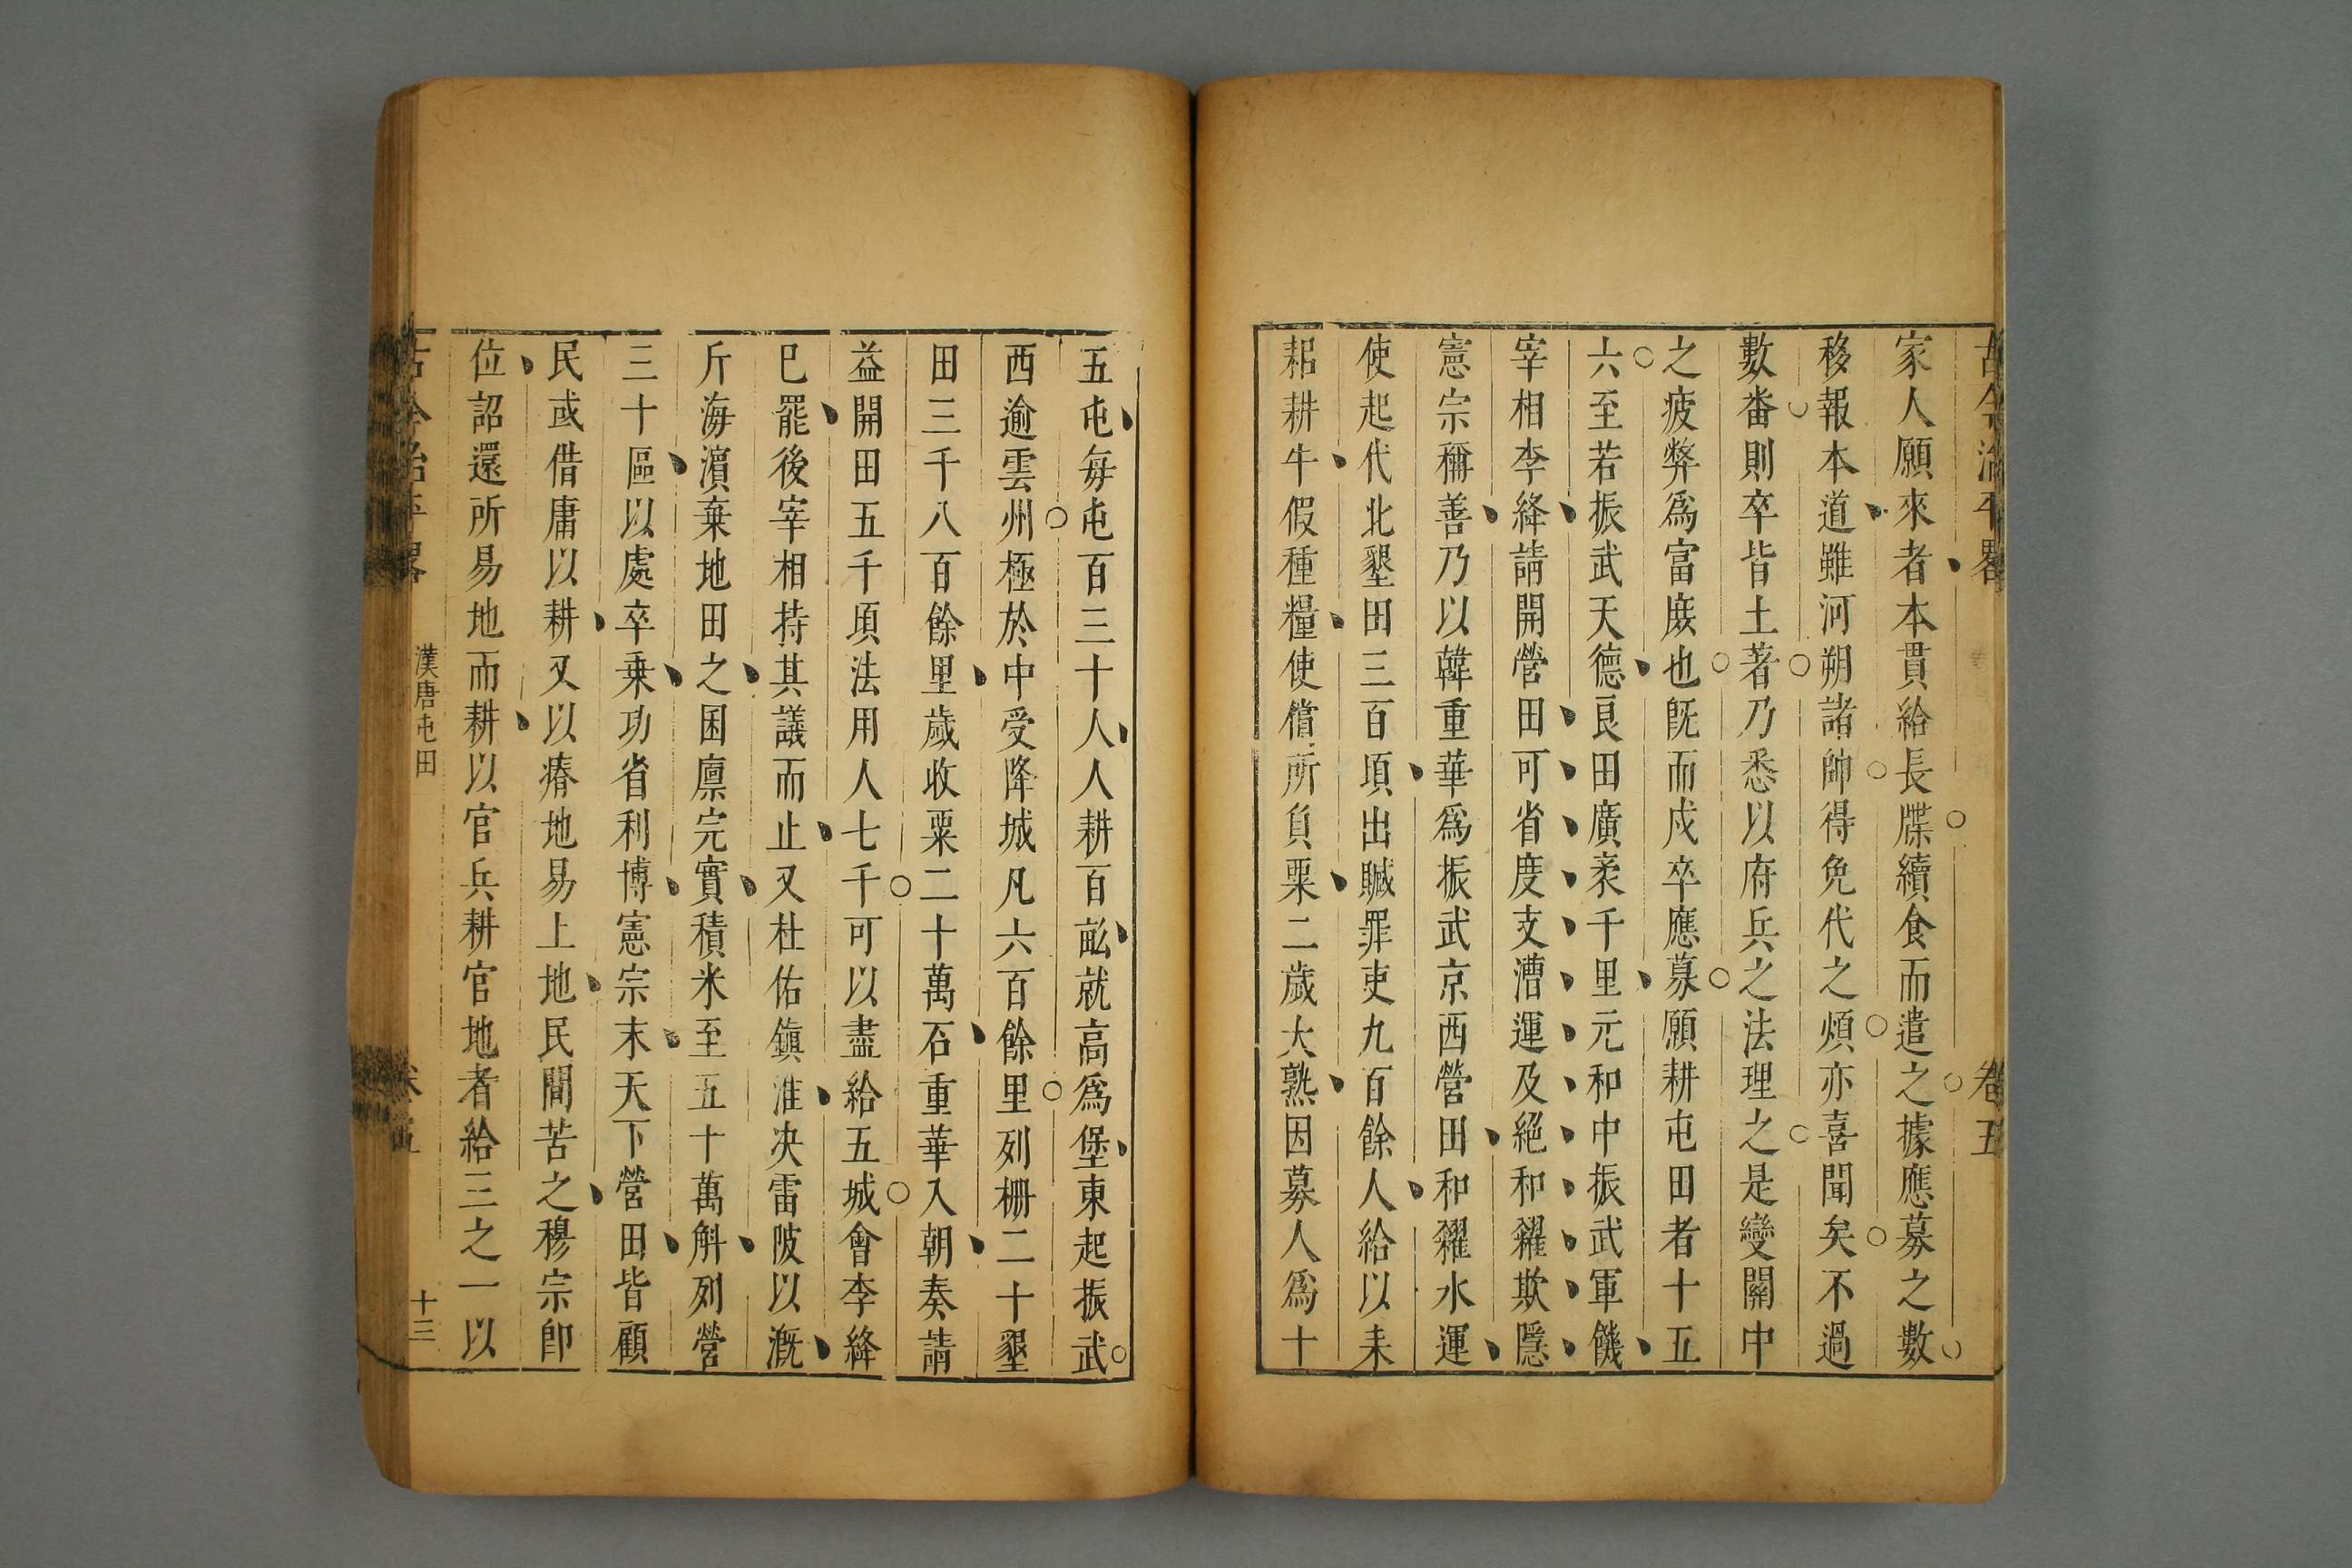 古今治平畧 卷五
家人願來者本貫給長牒續食而遣之據應募之數
移報本道雖河朔諸帥得免代之煩亦喜聞矣不過
數畨則卒皆土著乃悉以府兵之法理之是變關中
之疲弊爲富庻也旣而戍卒應募願耕屯田者十五
六至若振武天德良田廣袤千里元和中振武軍饑
宰相李絳請開營田可省度支漕運及絕和糴欺隱
憲宗稱善乃以韓重華爲振武京西營田和糴水運
使起代北墾田三百頃出贓罪吏九百餘人給以耒
耜耕牛假種糧使償所負粟二歲大熟因募人爲十
五屯每屯百三十人人耕百畝就高爲堡東起振武
西逾雲州極於中受降城凡六百餘里列柵二十墾
田三千八百餘里歲收粟二十萬石重華入朝奏請
益開田五千頃法用人七千可以盡給五城會李絳
巳罷後宰相持其議而止又杜佑鎭淮決雷陂以漑
斤海濵棄地田之囷廩完實積米至五十萬斛列營
三十區以處卒乗功省利博憲宗末天下營田皆顧
民或借庸以耕又以瘠地易上地民間苦之穆宗卽
位詔還所易地而耕以官兵耕官地者給三之一以
古今治平畧 漢唐屯田 卷五 十三